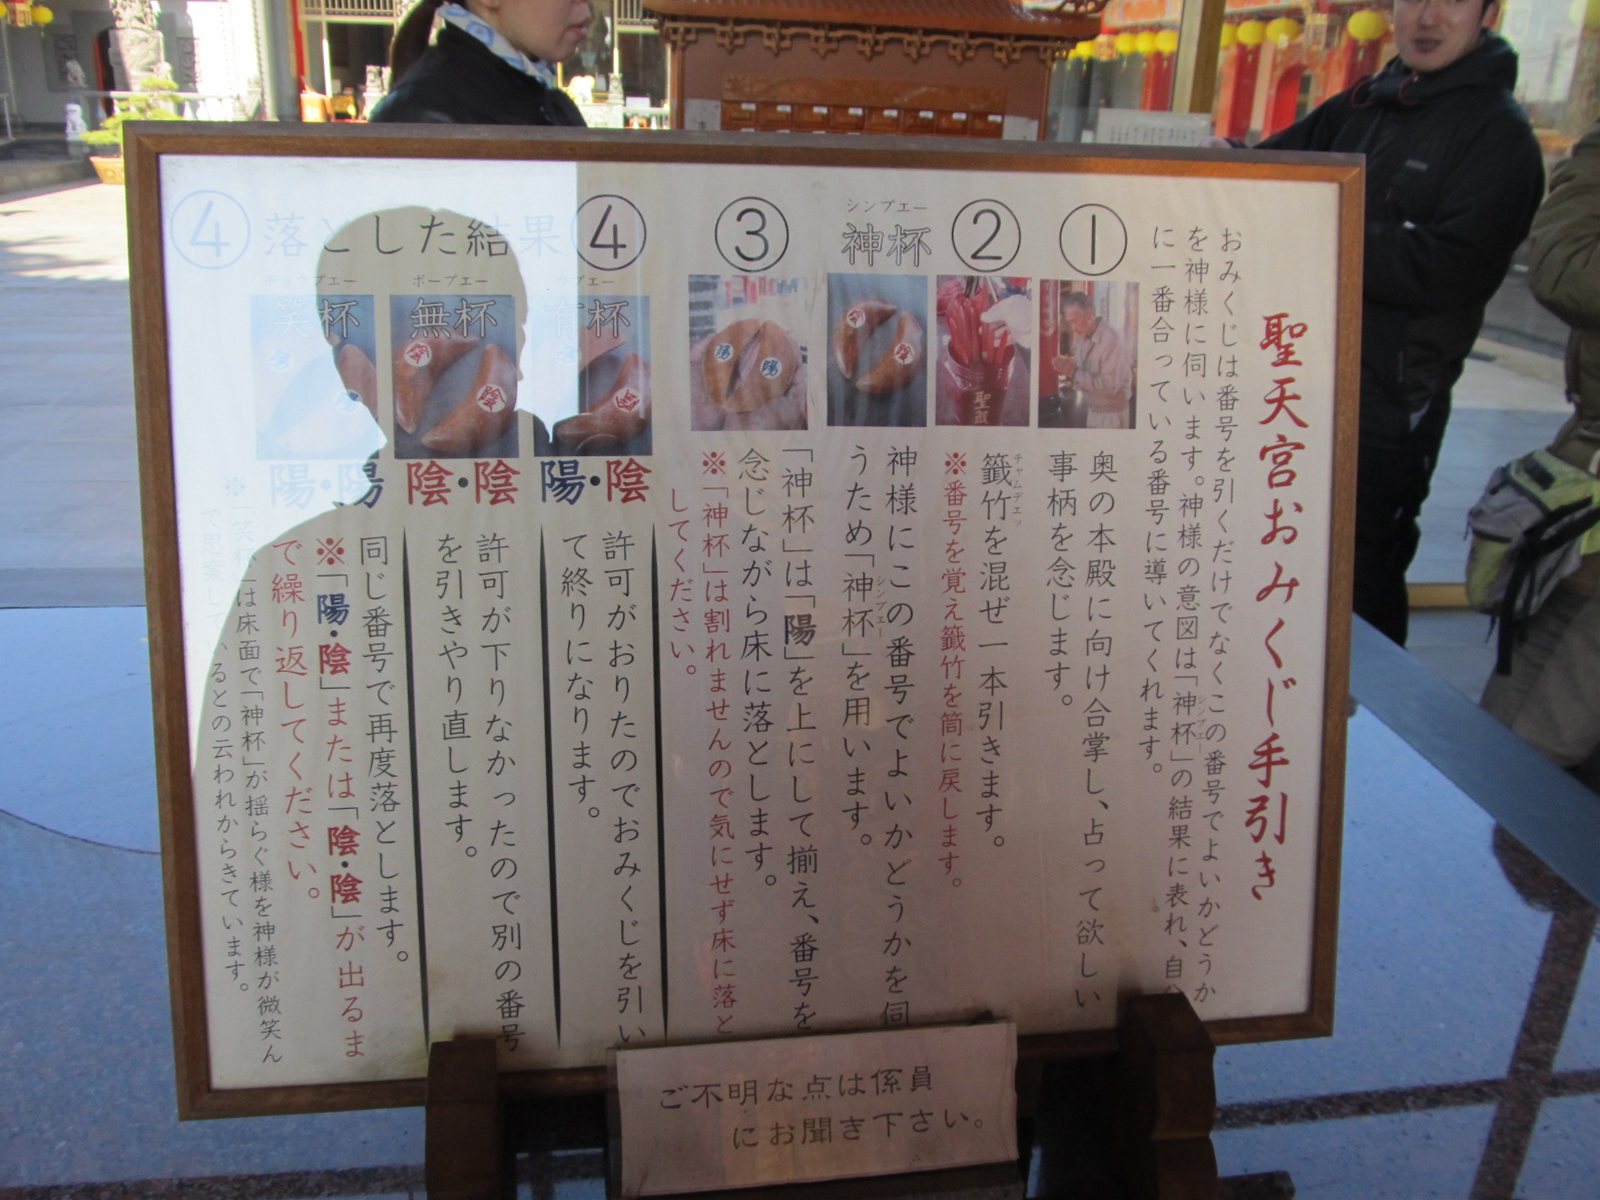 聖天宮おみくじ手引き
おみくじは番号を引くだけでなくこの番号でよいかどうか
を神様に伺います。神様の意図は「神杯」の結果に表れ、自分
シンプエー
に一番合っている番号に導いてくれます。
①
奥の本殿に向け合掌し、占って欲しい
事柄を念じます。
②
チャムデエッ
籤竹を混ぜ一本引きます。
※番号を覚え籤竹を筒に戻します。
聖
シンプエー
神杯
陰
陰
神様にこの番号でよいかどうかを伺
うため「神杯」を用います。
シンプエー
③
陽
陽
「神杯」は「陽」を上にして揃え、番号を
念じながら床に落とします。
※「神杯」は割れませんので気にせず床に落と
してください。
④
落とした結果
④
有杯
陰
陽・陰
許可がおりたのでおみくじを引い
て終りになります。
ボープエー
無杯
陰
陰
陰・陰
許可が下りなかったので別の番号
を引きやり直します。
チョウプエー
笑杯
陽・陽
同じ番号で再度落とします。
※「陽・陰」または「陰・陰」が出るま
で繰り返してください。
※「笑杯」は床面で「神杯」が揺らぐ様を神様が微笑ん
で思案しているとの云われからきています。
ご不明な点は係員
にお聞き下さい。